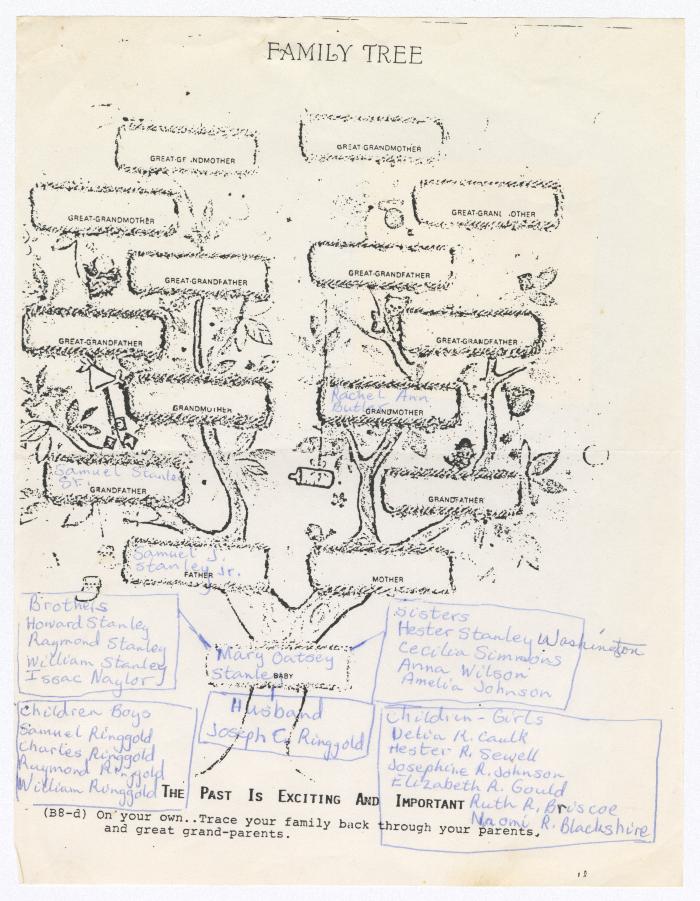 FAMILY TREE
GREAT-GRANDMOTHER
GREAT-GF .NDMOTHER
GREAT-GRANDMOTHER
GREAT-GRANL .OTHER
GREAT-GRANDFATHER
GREAT-GRANDFATHER
GREAT-GRANDFATHER
GREAT-GRANDFATHER
GRANDMOTHER
Rachel Ann
Butler
GRANDMOTHER
Samuel Stanley
Sr.
GRANDFATHER
GRANDFATHER
Samuel J.
Stanley Jr.
FATHER
MOTHER
Brothers
Howard Stanley
Raymond Stanley
William Stanley
Issac Naylor
Sisters
Hester Stanley Washington
Cecilia Simmons
Anna Wilson
Amelia Johnson
Mary Oatsey
Stanley
BABY
Husband
Joseph C. Ringgold
Children Boys
Samuel Ringgold
Charles Ringgold
Raymond Ringgold
William Ringgold
Children - Girls
Delia R. Caulk
Hester R. Sewell
Josephine R. Johnson
Elizabeth R. Gould
Ruth R. Briscoe
Naomi R. Blackshire
THE PAST IS EXCITING AND IMPORTANT
(B8-d) On your own..Trace your family back through your parents,
and great grand-parents.